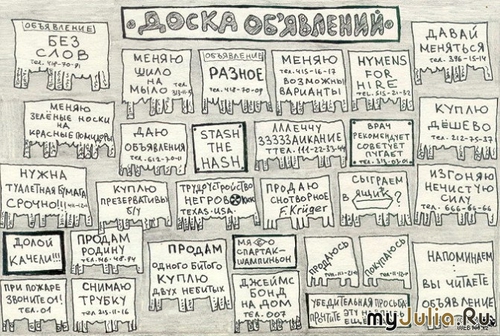 ДОСКА ОБ'ЯВЛЕНИЙ
ОБЪЯВЛЕНИЕ
БЕЗ
СЛОВ
МЕНЯЮ
ШИЛО
НА
МЫЛО
ОБЪЯВЛЕНИЕ
РАЗНОЕ
МЕНЯЮ
ТЕЛ. 415-16-17
ВОЗМОЖНЫ
ВАРИАНТЫ
HYMENS
FOR
HIRE
ДАВАЙ
МЕНЯТЬСЯ
МЕНЯЮ
ЗЕЛЁНЫЕ НОСКИ
НА
КРАСНЫЕ ПОМИДОРЫ
ДАЮ
ОБЪЯВЛЕНИЯ
STASH
THE
HASH
ТЕЛ. 111-22-33-44
ВРАЧ
РЕКОМЕНДУЕТ
СОВЕТУЕТ
ПУГАЕТ
КУПЛЮ
ДЁШЕВО
ТЕЛ. 212-75-37
НУЖНА
ТУАЛЕТНАЯ БУМАГА
СРОЧНО!!!
КУПЛЮ
ПРЕЗЕРВАТИВЫ
Б/У
ТРУДУСТРОЙСТВО
НЕГРОВ
TEXAS-USA.
ПРОДАЮ
СНОТВОРНОЕ
F. Krüger
СЫГРАЕМ
В ЯЩИК?
ИЗГОНЯЮ
НЕЧИСТУЮ
СИЛУ
ТЕЛ. 666-66-66
ДОЛОЙ
КАЧЕЛИ!!!
ПРОДАМ
РОДИНУ
ПРОДАМ
ОДНОГО БИТОГО
КУПЛЮ
ДВУХ НЕБИТЫХ
СПАРТАК-
ШАМПИНЬОН
ПРОДАЮСЬ
ПОКУПАЮСЬ
НАПОМИНАЕМ:
ВЫ ЧИТАЕТЕ
ОБЪЯВЛЕНИЕ
ПРИ ПОЖАРЕ
ЗВОНИТЕ 01!
ТЕЛ. 01
СНИМАЮ
ТРУБКУ
ТЕЛ. 215-11-16
ДЖЕЙМС
БОНД
НА ДОМ
ТЕЛ. 007
УБЕДИТЕЛЬНАЯ ПРОСЬБА
myJulia.Ru